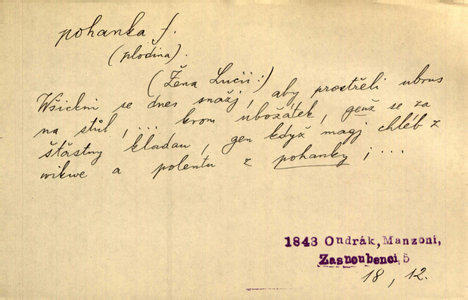 pohanka f.
(plodina).
(Žena Lucii:)
Wšickni se dnes snažj, aby prostřeli ubrus
na stůl, ... krom ubožátek, genž se za
šťastny kladau, gen když magj chléb z
wikwe a polentu z pohanky; ...
1843 Ondrák, Manzoni,
Zasnoubenci, 5
18, 12.